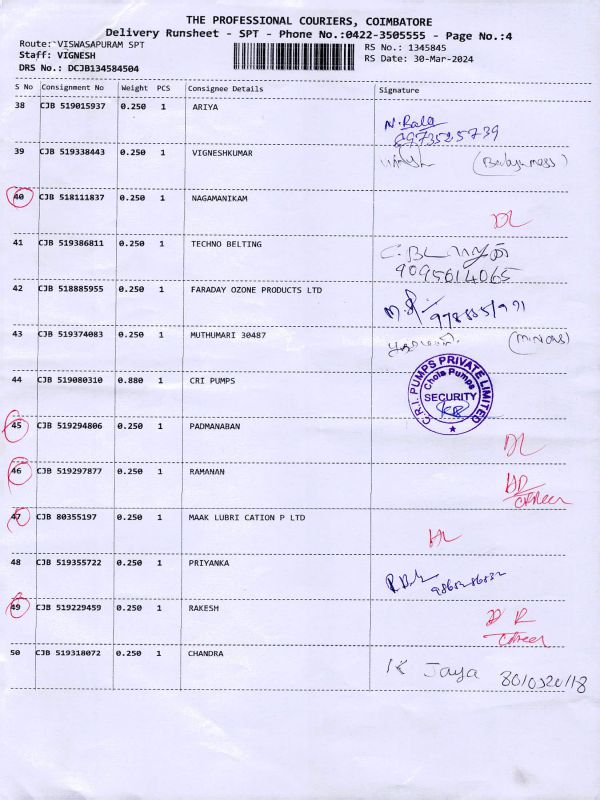 THE PROFESSIONAL COURIERS, COIMBATORE
Delivery Runsheet - SPT - Phone No.:0422-3505555 - Page No.:4
Route: VISWASAPURAM SPT
RS No.: 1345845
Staff: VIGNESH
RS Date: 30-Mar-2024
DRS No.: DCJB134584504
S No Consignment No Weight PCS Consignee Details Signature
38 CJB 519015937 0.250 1 ARIYA
N. Bala
8973525739
39 CJB 519338443 0.250 1 VIGNESHKUMAR
40 CJB 518111837 0.250 1 NAGAMANIKAM
DL
41 CJB 519386811 0.250 1 TECHNO BELTING
9095614065
42 CJB 518885955 0.250 1 FARADAY OZONE PRODUCTS LTD
43 CJB 519374083 0.250 1 MUTHUMARI 30487
44 CJB 519080310 0.880 1 CRI PUMPS
C.R.I. PUMPS PRIVATE LIMITED
Chola Pumps
SECURITY
45 CJB 519294806 0.250 1 PADMANABAN
DL
46 CJB 519297877 0.250 1 RAMANAN
47 CJB 80355197 0.250 1 MAAK LUBRI CATION P LTD
48 CJB 519355722 0.250 1 PRIYANKA
49 CJB 519229459 0.250 1 RAKESH
50 CJB 519318072 0.250 1 CHANDRA
K Jaya